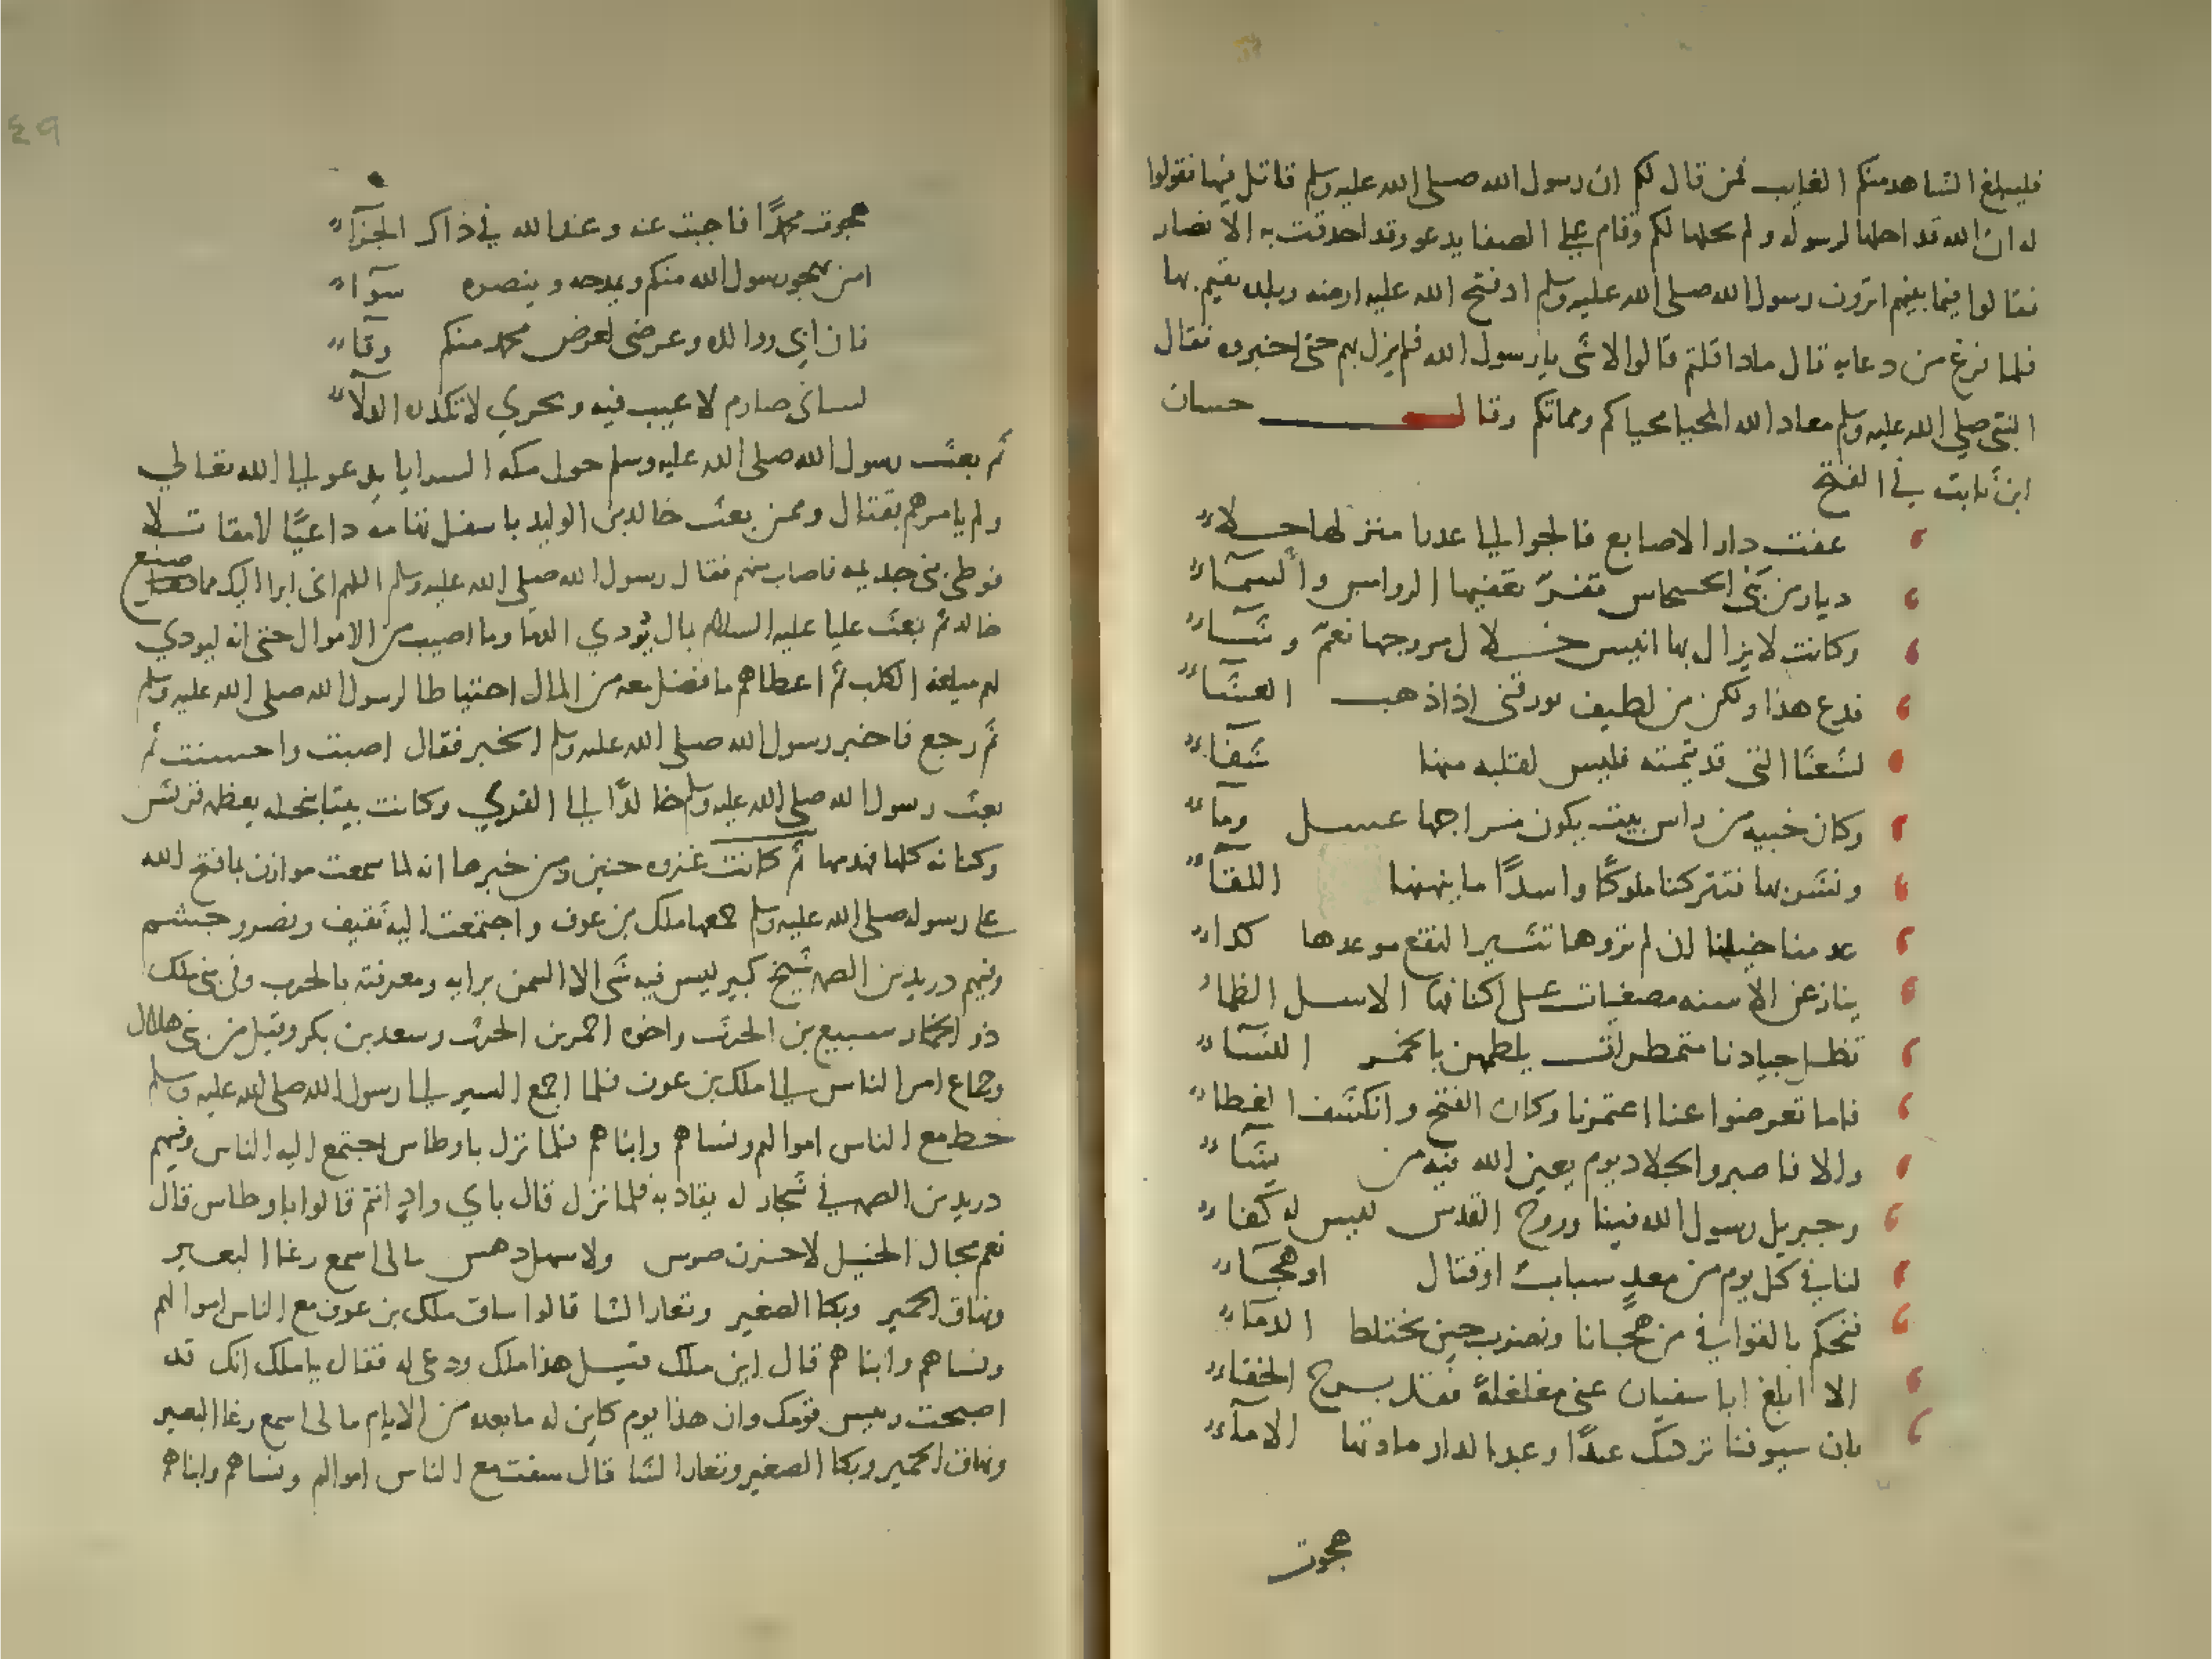 فليبلغ الشاهد منكم الغايب فمن قال لكم ان رسول الله صلى الله عليه وسلم قاتل فيها فقولوا
له ان الله قد احلها لرسوله ولم يحلها لكم وقام على الصفا يدعو وقد احدقت به الانصار
فقالوا فيما بينهم اترون رسول الله صلى الله عليه وسلم اد فتح الله عليه ارضه وبلده يقيم بها
فلما فرغ من دعايه قال مادا قلتم قالوا لا شى يا رسول الله فلم يزل بهم حتى اخبروه فقال
النبى صلى الله عليه وسلم معاد الله المحيا محياكم ومماتكم وقال حسان
ابن ثابت في الفتح
عفت دار الاصابع فالجوا الى عدرا منزلها خلاء
ديار من بنى الحسحاس قفر تعفيها الروامس والسماء
وكانت لا يزال بها انيس خلال مروجها نعم وشاء
فدع هذا ولكن من لطيف يورقنى اذا ذهب العشاء
لشعثا التى قد تيمته فليس لقلبه منها شفاء
وكان خبيه من راس بيت يكون مزاجها عسل وماء
ونشربها فتتركنا ملوكًا واسدًا ما ينهنها اللقاء
عدمنا خيلنا ان لم تروها تثير النقع موعدها كداء
ينازعن الاسنه مصغيات على اكتافها الاسل الظماء
تظل جيادنا متمطرات يلطمهن بالخمر النساء
فاما تعرضوا عنا اعتمرنا وكان الفتح وانكشف الغطاء
والا فاصبروا لجلاد يوم يعين الله فيه من يشاء
وجبريل رسول الله فينا وروح القدس ليس له كفاء
لنا في كل يوم من معد سباب او قتال او هجاء
فنحكم بالقوافي من هجانا ونضرب حين يختلط الدماء
الا ابلغ ابا سفيان عنى مغلغلة فقد برح الخفاء
بان سيوفنا تركتك عبدًا وعبد الدار سادتها الاماء
هجوت
٤٩
هجوت محمدًا فاجبت عنه وعند الله في ذاك الجزاء
امن يهجو رسول الله منكم ويمدحه وينصره سواء
فان ابي ووالده وعرضى لعرض محمد منكم وقاء
لسانى صارم لا عيب فيه وبحري لا تكدره الدلاء
ثم بعث رسول الله صلى الله عليه وسلم حول مكه السرايا يدعو الى الله تعالى
ولم يامرهم بقتال وممن بعث خالد بن الوليد باسفل تهامه داعيًا لا مقاتلا
فوطى بنى جديمه فاصاب منهم فقال رسول الله صلى الله عليه وسلم اللهم انى ابرا اليك مما صنع
خالد ثم بعث عليا عليه السلام بمال يودي الدما وما اصيب من الاموال حتى انه ليودي
لهم ميلغة الكلب ثم اعطاهم ما فضل معه من المال احتياطا لرسول الله صلى الله عليه وسلم
ثم رجع فاخبر رسول الله صلى الله عليه وسلم الخبر فقال اصبت واحسنت ثم
بعث رسول الله صلى الله عليه وسلم خالدًا الى العزي وكانت بيتا بنخله يعظمه قريش
وكنانه كلها فهدمها ثم كانت غزوه حنين ومن خبرها انه لما سمعت هوازن بما فتح الله
على رسوله صلى الله عليه وسلم جمعها ملك بن عوف واجتمعت اليه ثقيف ونصر وجشم
وفيهم دريد بن الصمه شيخ كبير ليس فيه شى الا التيمن برايه ومعرفته بالحرب وفى بنى ملك
ذو الخمار سبيع بن الحرث واخوه احمر بن الحرث وسعد بن بكر وقيل من بنى هلال
وجماع امر الناس الى ملك بن عوف فلما اجمع السير الى رسول الله صلى الله عليه وسلم
حط مع الناس اموالهم ونساهم وابناهم فلما نزل باوطاس اجتمع اليه الناس وفيهم
دريد بن الصمه في شجار له يقاد به فلما نزل قال باي واد انتم قالوا باوطاس قال
نعم مجال الخيل لا حزن ضرس ولا سهل دهس مالى اسمع رغا البعير
ونهاق الحمير وبكا الصغير ويعار الشا قالوا ساق ملك بن عوف مع الناس اموالهم
ونساهم وابناهم قال اين ملك فقيل هذا ملك ودعى له فقال يا ملك انك قد
اصبحت رييس قومك وان هذا يوم كاين له ما بعده من الايام ما لى اسمع رغا البعير
ونهاق الحمير وبكا الصغير ويعار الشا قال سقت مع الناس اموالهم ونساهم وابناهم